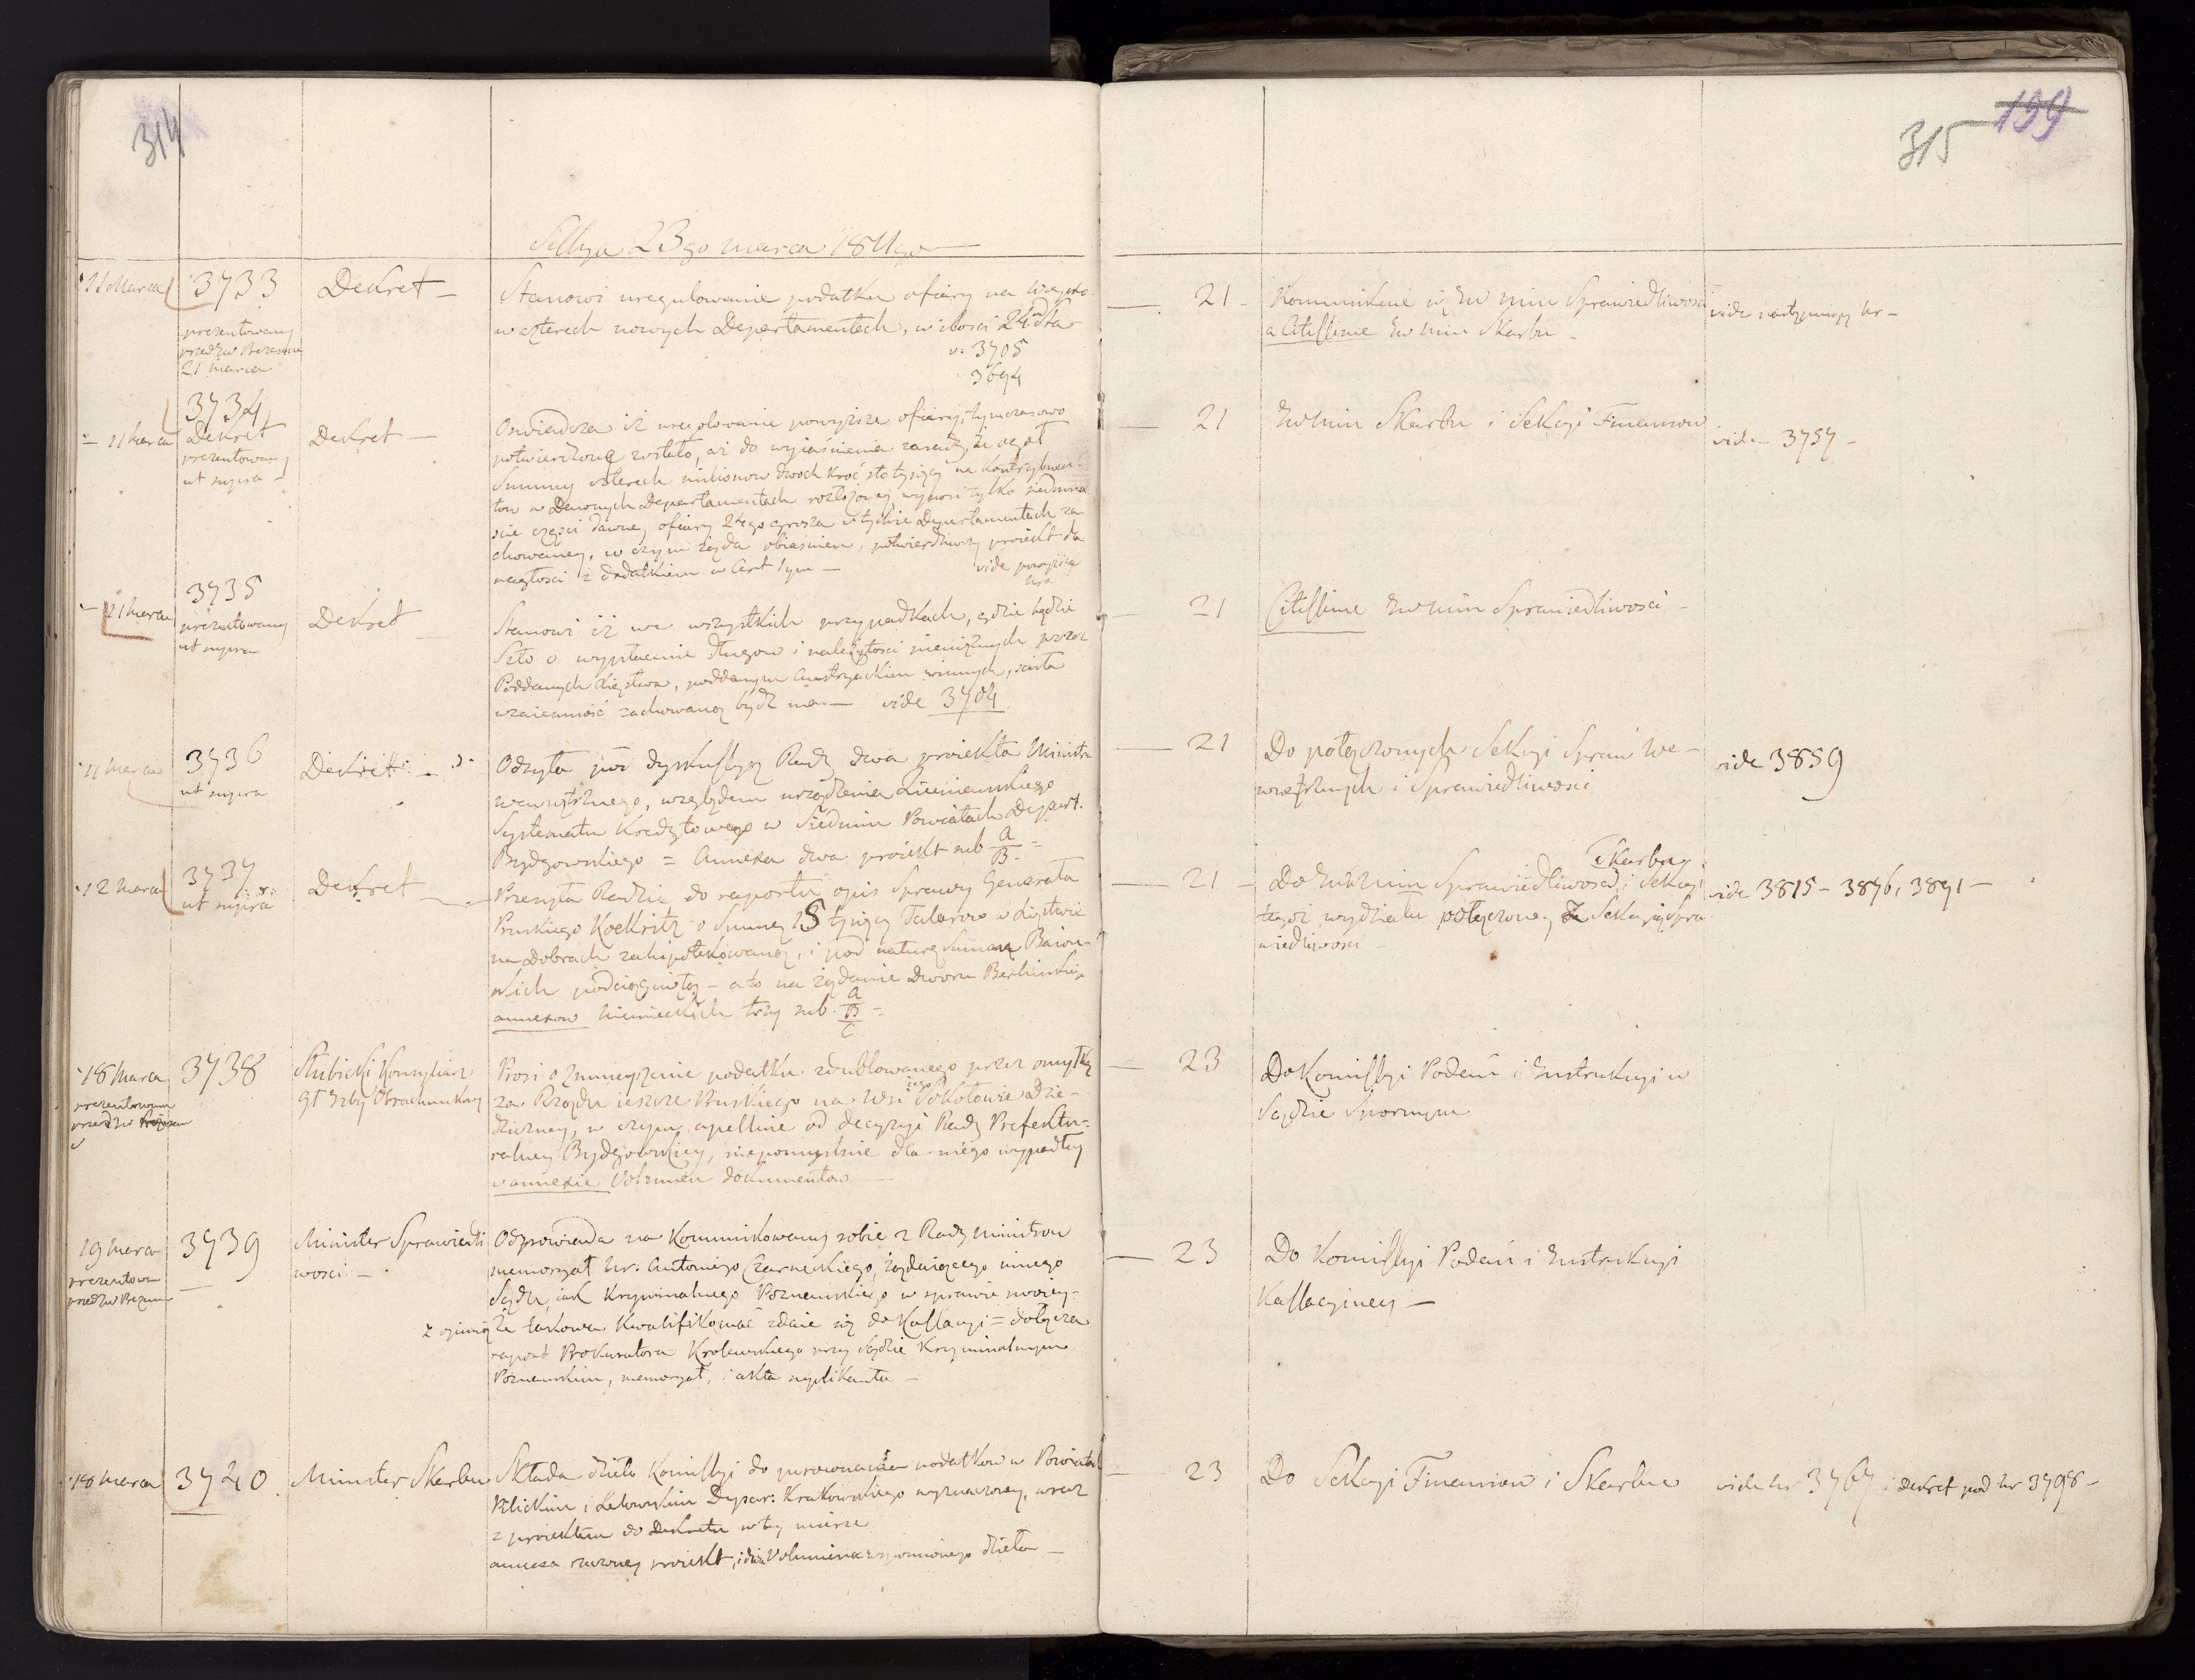 314
Sessya 23go marca 1811go
11 Marca
3733
prezentowany
przed JW Prezesem
21 marca
Dekret
Stanowi uregulowanie podatku ofiary na
w czterech nowych Departamentach, w ilości 24
v: 3705
3694
11 Marca
3734
Dekret
prezentowany
ut supra
Dekret
Oswiadcza iż uregulowanie powyższe ofiary, tymczasowo
potwierdzone zostało, aż do wyiaśnienia zasady, że ogół
Summy czterech milionow dwoch kroć sto tysięcy na kontrybuen-
tow w Departamentach rozłożoney wynosi tylko siedmna
ście części dawney ofiary 24go grosza w tychże Departamentach za-
chowaney, w czym żąda obiaśnień, potwierdziwszy proiekt dla
nagłości z dodatkiem w Art 1ym
vide powyższy
nro
11 Marca
3735
prezentowany
ut supra
Dekret
Stanowi iż we wszystkich przypadkach, gdzie będzie
szło o wypłacenie długow i należytości pieniężnych przez
Poddanych Xięstwa, poddanym Austryackim winnych, ścisła
wzaiemność zachowaną bydź ma — vide 3704
11 Marca
3736
ut supra
Dekret
Odsyła pod dyskussyą Rady dwa proiekta Ministra
wewnętrznego, względem urządzenia Ziemiańskiego
Systematu kredytowego w Siedmiu Powiatach Depart.
Bydgowskiego = Annexa dwa proiekt sub A
B
12 Marca
3737
ut supra
Dekret
Przesyła Radzie do raportu opis Sprawy Generała
Pruskiego Koekritz o Summę 15 tysięcy Talarow w Xięstwie
na Dobrach zahipotekowaną, i pod naturę Summ Baion-
skich podciągniętą — a to na żądanie Dworu Berlińskiego
annexow niemieckich trzy sub. A
B
C
18 Marca
prezentowany
przed JW Prezesem
3738
Słubicki Konsyliarz
Gł Izby Obrachunkowey
Prosi o zmnieyszenie podatku zdublowanego przez omyłkę
za Rządu ieszcze Pruskiego na Wsi iego Sokołowie Dzie-
dziczney, w czym apelluie od decyzyi Rady Prefektu-
ralney Bydgowskiey, niepomyślnie dla niego wypadłey
w annexie Volumen dokumentow
19 Marca
prezentowany
przed JW Prezesem
3739
Minister Sprawiedli
wości
Odpowiada na kommunikowany sobie z Rady Ministrow
memoryał hr: Antoniego Czarneckiego, żądaiącego innego
Sądu, iak Kryminalnego Poznańskiego w sprawie swoiey
z opinią że takowa kwalifikować zdaie się do Kassacyi = dołącza
raport Prokuratora Krolewskiego przy Sądzie Kryminalnym
Poznańskim, memoryał, i akta suplikanta
18 Marca
3740
Minister Skarbu
Składa dzieło Komissyi do porownania podatkow w Powiatach
Pilickim i Lelowskim Depar: Krakowskiego wyznaczoney, wraz
z proiektem do Dekretu w tey mierze
annexa rzeczony proiekt, i dwa Volumina wspomnionego dzieła
199
315
21
Kommunikuie się JW Min Sprawiedliwości
a Citissime JW Min Skarbu
vide następuiący Nr
21
JW Min Skarbu i Sekcyi Finansow
vide 3757
21
Citissime JW Min Sprawiedliwości
21
Do połączonych Sekcyi Spraw We-
wnętrznych i Sprawiedliwości
vide 3859
21
Skarbu
Do JW Min Sprawiedliwości i Sekcyi
tegoż wydziału połączoney z Sekcyą Spra
wiedliwości
vide 3815 — 3876, 3891
23
Do Komissyi Podań i Instrukcyi w
Sądzie Spornym
23
Do Komissyi Podań i Instrukcyi
Kassacyiney
23
Do Sekcyi Finansow i Skarbu
vide Nr 3767 i Dekret pod Nr 3798